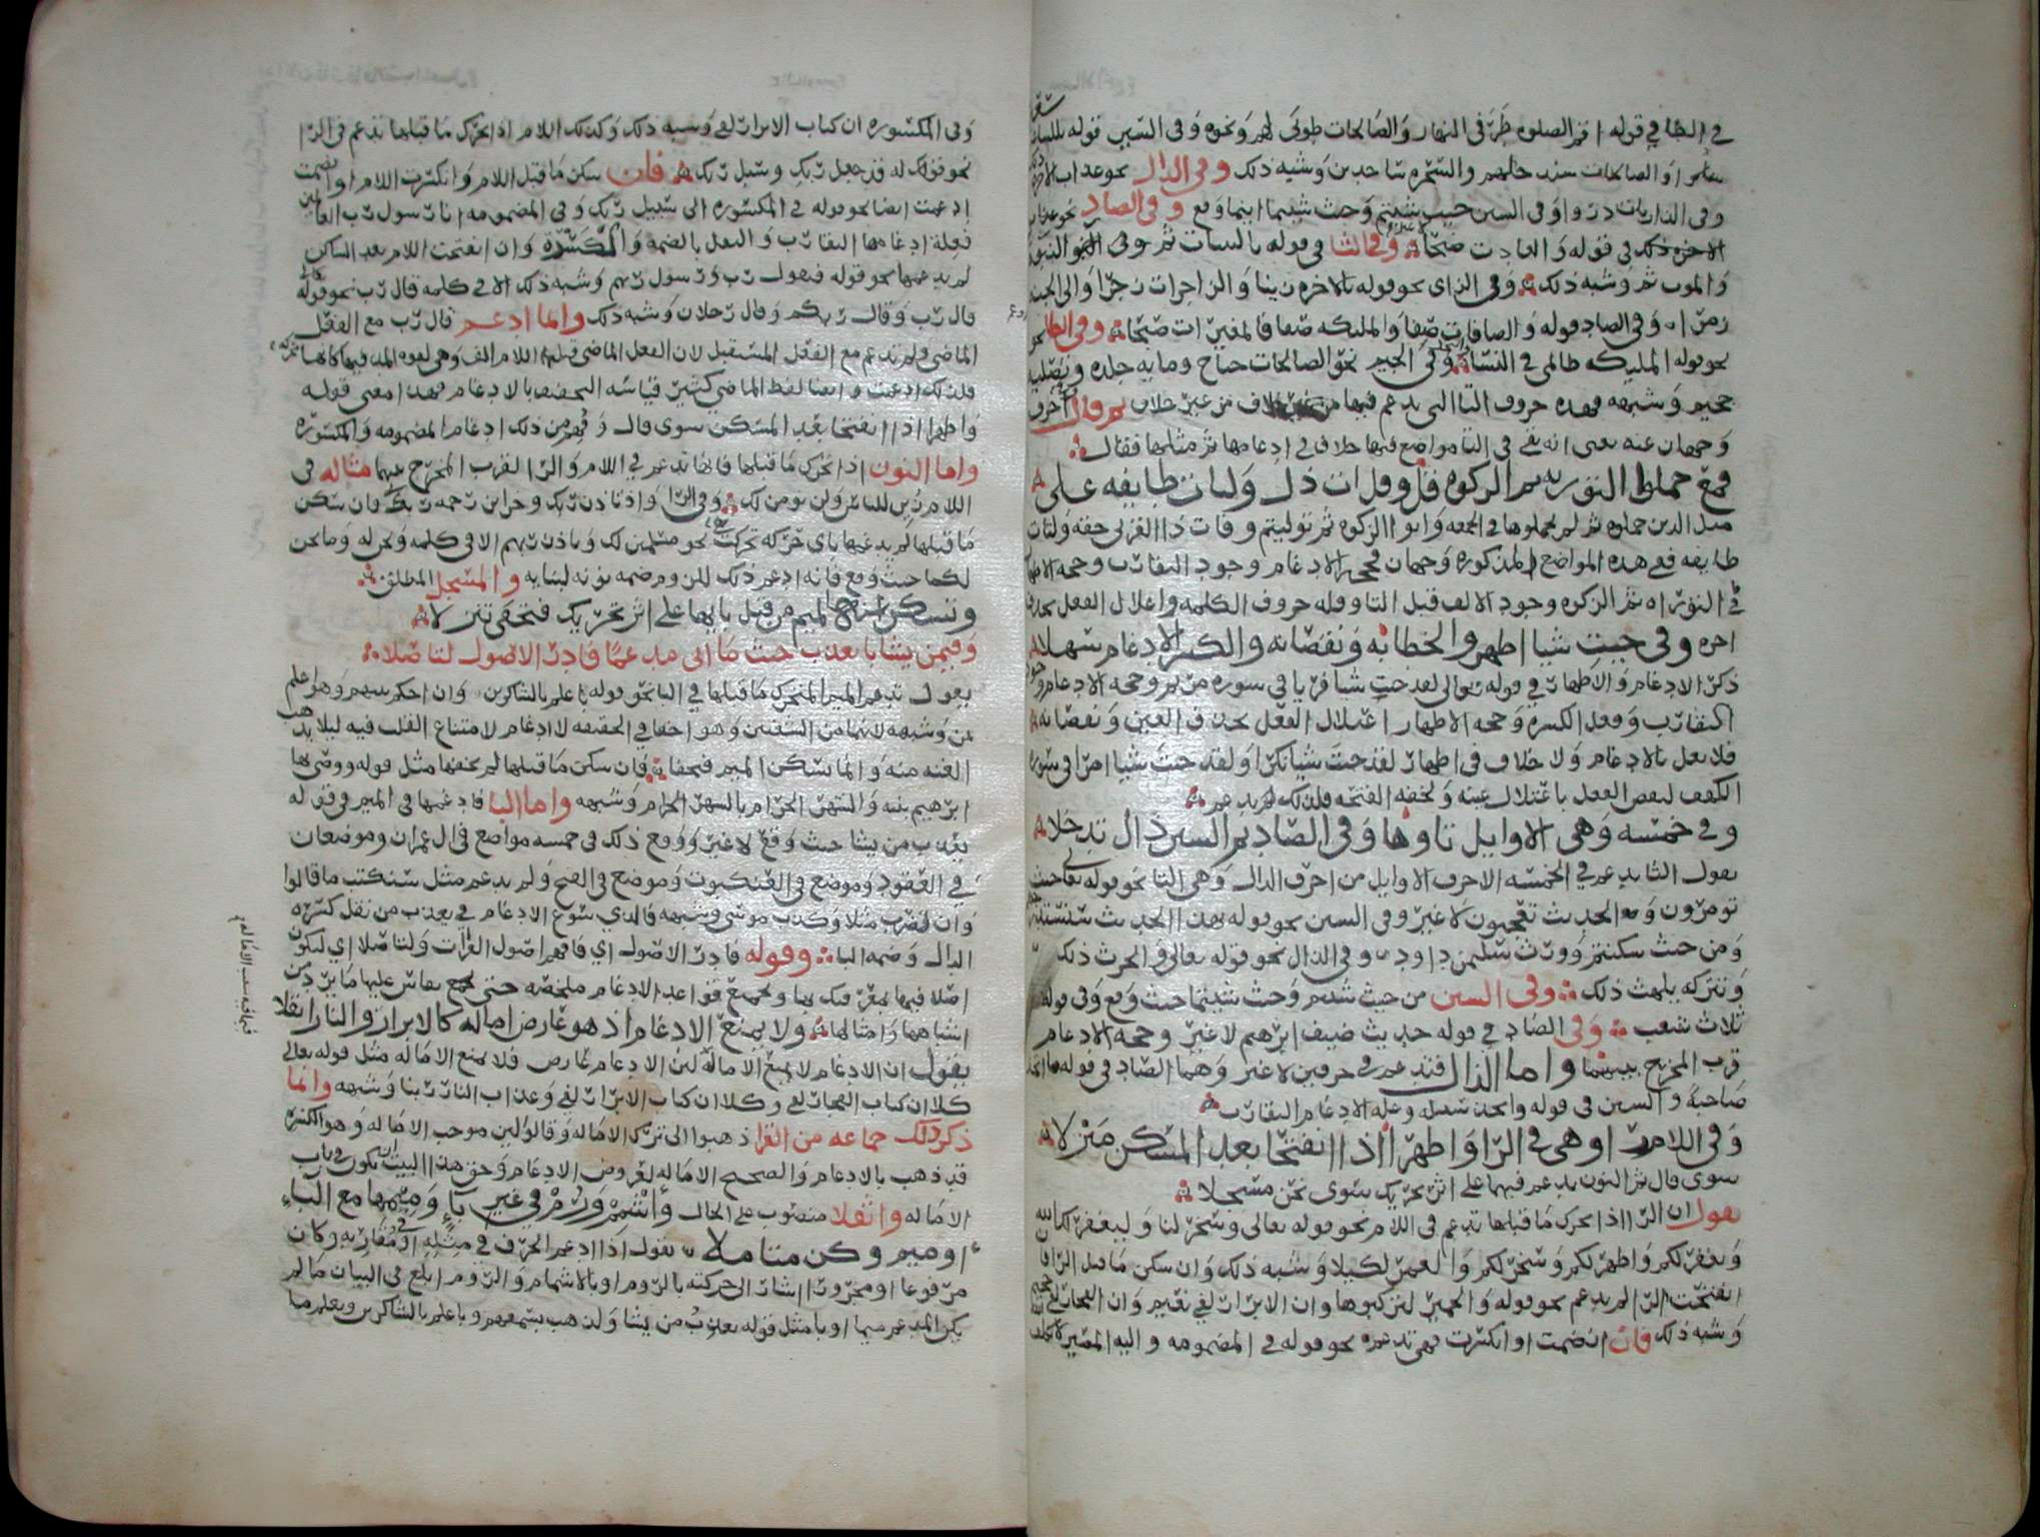 في الطا في قوله اقم الصلوه طرفى النهار والصالحات طوبى لهم ونحوه وفى السين قوله
والصالحات سندخلهم والسحره ساجدين وشبه ذلك وفى الذال نحو عذاب الاخره
وفى الذاريات ذروا وفى السين حيث شيتم وحيث شيتما اينما وقع وفى الضاد
ذلك فى قوله والعاديات ضبحا وفى الثا فى قوله بالبينات ثم وفى النبوه
والموت ثم وشبه ذلك وفى الزاى نحو قوله بالاخره زينا والزاجرات زجرا والى الجنه
زمرا وفى الصاد قوله والصافات صفا والمليكه صفا فالمغيرات صبحا وفى الظا
نحو قوله المليكه ظالمى فى النسا وفى الجيم نحو الصالحات جناح ومايه جلده وتصليه
جحيم وشبهه فهذه حروف التا التى يدغم فيها من غير خلاف ثم قال
وجهان عنه يعنى انه بقى فى التا مواضع فيها خلاف فى ادغامها ثم مثلها فقال
فمع حملوا التوريه ثم الزكوه قل وقل ات ذال ولتات طايفه علا
مثل الذين حملوا التوريه ثم لم يحملوها فى الجمعه واتوا الزكوه ثم توليتم وات ذا القربى حقه ولتات
طايفه ففى هذه المواضع المذكوره وجهان فحجه الادغام وجود التقارب وحجه الاظهار
فى التوراه ثم الزكوه وجود الالف قبل التا وقله حروف الكلمه واعلال الفعل بحذف
اخره وفى جيت شيا اظهروا لخطابه ونقصانه والكسر الادغام سهلا
ذكر الادغام والاظهار فى قوله تعالى لقد جيت شيا فريا فى سوره مريم وحجه الادغام وجود
التقارب وثقل الكسره وحجه الاظهار اعتلال الفعل بحذف العين ونقصانه
فلا يعل بالادغام ولا خلاف فى اظهار لقد جيت شيا نكرا ولقد جيت شيا امرا فى سوره
الكهف لنقص الفعل باعتلال عينه ولخفه الفتحه فلذلك لم يدغم
وفى خمسه وهى الاوايل ثاوها وفى الصاد ثم السين ذال تدخلا
يقول الثا يدغم فى الخمسه الاحرف الاوايل من احرف الدال وهى التا نحو قوله تعالى حيث
تومرون ومع الحديث تعجبون لا غير وفى السين نحو قوله بهذا الحديث سنستدرجهم
ومن حيث سكنتم وورث سليمن داود وفى الذال نحو قوله تعالى والحرث ذلك
وتتركه يلهث ذلك وفى الشين من حيث شيتم وحيث شيتما حيث وقع وفى قوله
ثلاث شعب وفى الضاد فى قوله حديث ضيف ابرهيم لا غير وحجه الادغام
قرب المخرج بينهما واما الذال فتدغم فى حرفين لا غير وهما الصاد فى قوله ما اتخذ
صاحبه والسين فى قوله واتخذ سبيله وعله الادغام التقارب
وفى اللام را وهى فى الرا واظهرا اذا انفتحا بعد المسكن منزلا
سوى قال ثم النون يدغم فيهما على اثر تحريك سوى نحن مسجلا
يقول ان الرا اذا تحرك ما قبلها تدغم فى اللام نحو قوله تعالى وسخر لنا وليغفر لك الله
ويغفر لكم واطهر لكم وسخر لكم والعمر لكيلا وشبه ذلك وان سكن ما قبل الرا
انفتحت الرا لم يدغم نحو قوله والحمير لتركبوها وان الابرار لفى نعيم وان الفجار لفى
وشبه ذلك فان انضمت او انكسرت فهى تدغم نحو قوله فى المضمومه واليه المصير لا يكلف
وفى المكسوره ان كتاب الابرار لفى وشبه ذلك وكذلك اللام اذا تحرك ما قبلها تدغم فى الرا
نحو قولك له قد جعل ربك وسبل ربك فان سكن ما قبل اللام وانكسرت اللام او انضمت
ادغمت ايضا نحو قوله فى المكسوره الى سبيل ربك وفى المضمومه انا رسول رب العالمين
فعله ادغامها التقارب والثقل بالضمه والكسره وان انفتحت اللام بعد الساكن
لم يدغمها نحو قوله فيقول رب ورسول ربهم وشبه ذلك الا فى كلمه قال رب نحو قوله
قال رب وقال ربكم وقال رجلان وشبه ذلك وانما ادغم قال رب مع الفعل
الماضى ولم تدغم مع الفعل المستقبل لان الفعل الماضى قبل اللام الف وهى لقوه المد فيها كانها متحركه
فلذلك ادغمت وايضا لفظ الماضى كثير قياسه التخفيف بالادغام فهذا معنى قوله
واظهرا اذا انفتحا بعد المسكن سوى قال وفهم من ذلك ادغام المضمومه والمكسوره
واما النون اذا تحرك ما قبلها فانها تدغم فى اللام والرا لقرب المخرج بينها مثاله فى
اللام زين للناس ولن نومن لك وفى الرا واذ تاذن ربك وخزاين رحمه ربك وان سكن
ما قبلها لم يدغمها باى حركه تحركت نحو مسلمين لك وباذن ربهم الا فى كلمه ونحن له وما نحن
لكما حيث وقع فانه ادغم ذلك للزوم ضمه نونه لبنايه والمسجل المطلق
وتسكن عنه الميم من قبل بايها على اثر تحريك فتخفى تنزلا
وفى من يشا با يعذب حيث ما اتى مدغما فادر الاصول لتاصلا
يقول تدغم الميم المتحرك ما قبلها فى البا نحو قوله باعلم بالشاكرين وان احكم بينهم وهو اعلم
بمن وشبهه لانهما من الشفتين وهو اخفا فى الحقيقه لا ادغام لامتناع القلب فيه ليلا يذهب
الغنه منه وانما يسكن الميم فتخفا فان سكن ما قبلها لم يخفها مثل قوله ووصى بها
ابرهيم بنيه والشهر الحرام بالشهر الحرام وشبهه واما البا فادغمها فى الميم فى قوله
يعذب من يشا حيث وقع لا غير ووقع ذلك فى خمسه مواضع فى ال عمران وموضعان
فى العقود وموضع فى العنكبوت وموضع فى الفتح ولم يدغم مثل سنكتب ما قالوا
وان يضرب مثلا وكذب موسى وشبهه فالذى سوغ الادغام فى يعذب من ثقل كسره
الذال وضمه البا وقوله فادر الاصول اي فافهم اصول القرات ولتاصلا اي لتكون
اصلا فيها بمعرفتك بها وبجميع قواعد الادغام ملخصه حتى تجمع بقاس عليها ما يرد من
اشباهها وامثالها ولا يمنع الادغام اذ هو عارض اماله كالابرار والنار اثقلا
يقول ان الادغام لا يمنع الاماله لان الادغام عارض فلا يمنع الاماله مثل قوله تعالى
كلا ان كتاب الفجار لفى وكلا ان كتاب الابرار لفى وعذاب النار ربنا وشبهه وانما
ذكر ذلك جماعه من القرا ذهبوا الى ترك الاماله وقالوا لان موجب الاماله وهو الكسره
قد ذهب بالادغام والصحيح الاماله لعروض الادغام وحق هذا البيت ان يكون فى باب
الاماله واثقلا منصوب على الحال وأشمم ورم في غير باء وميمها مع الباء
او ميم وكن متاملا يقول اذا ادغم الحرف في مثله او في مقاربه وكان
مرفوعا او مجرورا اشار الى حركته بالروم او بالاشمام والروم ابلغ فى البيان ما لم
يكن المدغم ميما او با مثل قوله يعذب من يشا ولذهب بسمعهم وباعلم بالشاكرين ويعلم ما